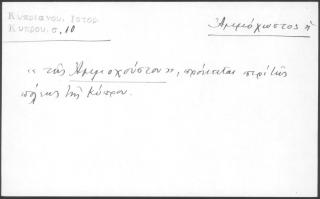 Κυπριανου, Ιστορ.
Κυπρου. σ, 10
Ἀμμόχωστος ἡ
« τῆς Ἀμμοχούστου », πρόκειται περὶ τῆς
πόλεως τῆς Κύπρου.